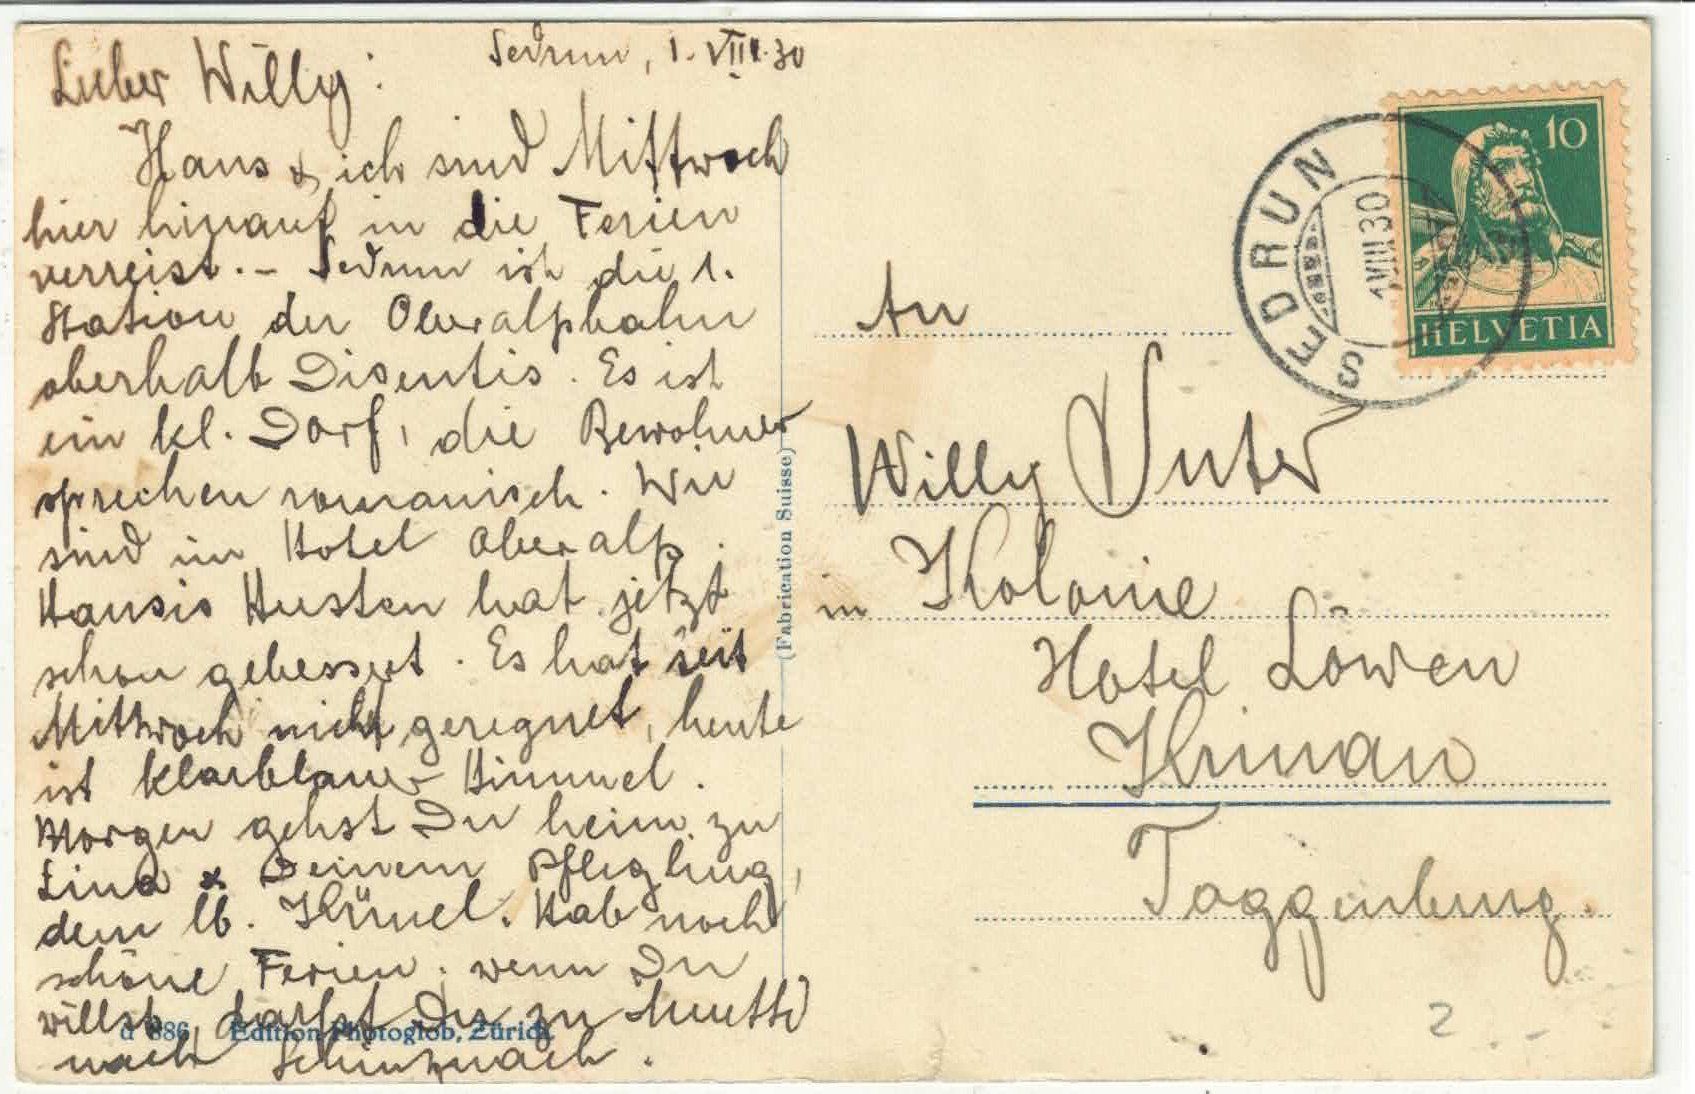 Sedrun, 1. VIII. 30
Lieber Willy:
Hans & ich sind Mittwoch
hier hinauf in die Ferien
verreist. – Sedrun ist die 1.
Station der Oberalpbahn
oberhalb Disentis. Es ist
ein kl. Dorf, die Bewohner
sprechen romanisch. Wir
sind im Hotel Oberalp.
Hansis Husten hat jetzt
schon gebessert. Es hat seit
Mittwoch nicht geregnet, heute
ist klarblauer Himmel.
Morgen gehst Du heim zu
Lina & Deinem Pflegling,
dem lb. Hünel. Hab noch
schöne Ferien. wenn Du
willst, darfst Du zu Mutti
nach Schinznach.
d 886 Edition Photoglob, Zürich
(Fabrication Suisse)
SEDRUN
1.VIII.30
10
HELVETIA
An
Willy Suter
in Kolonie
Hotel Löwen
Krinau
Toggenburg.
2